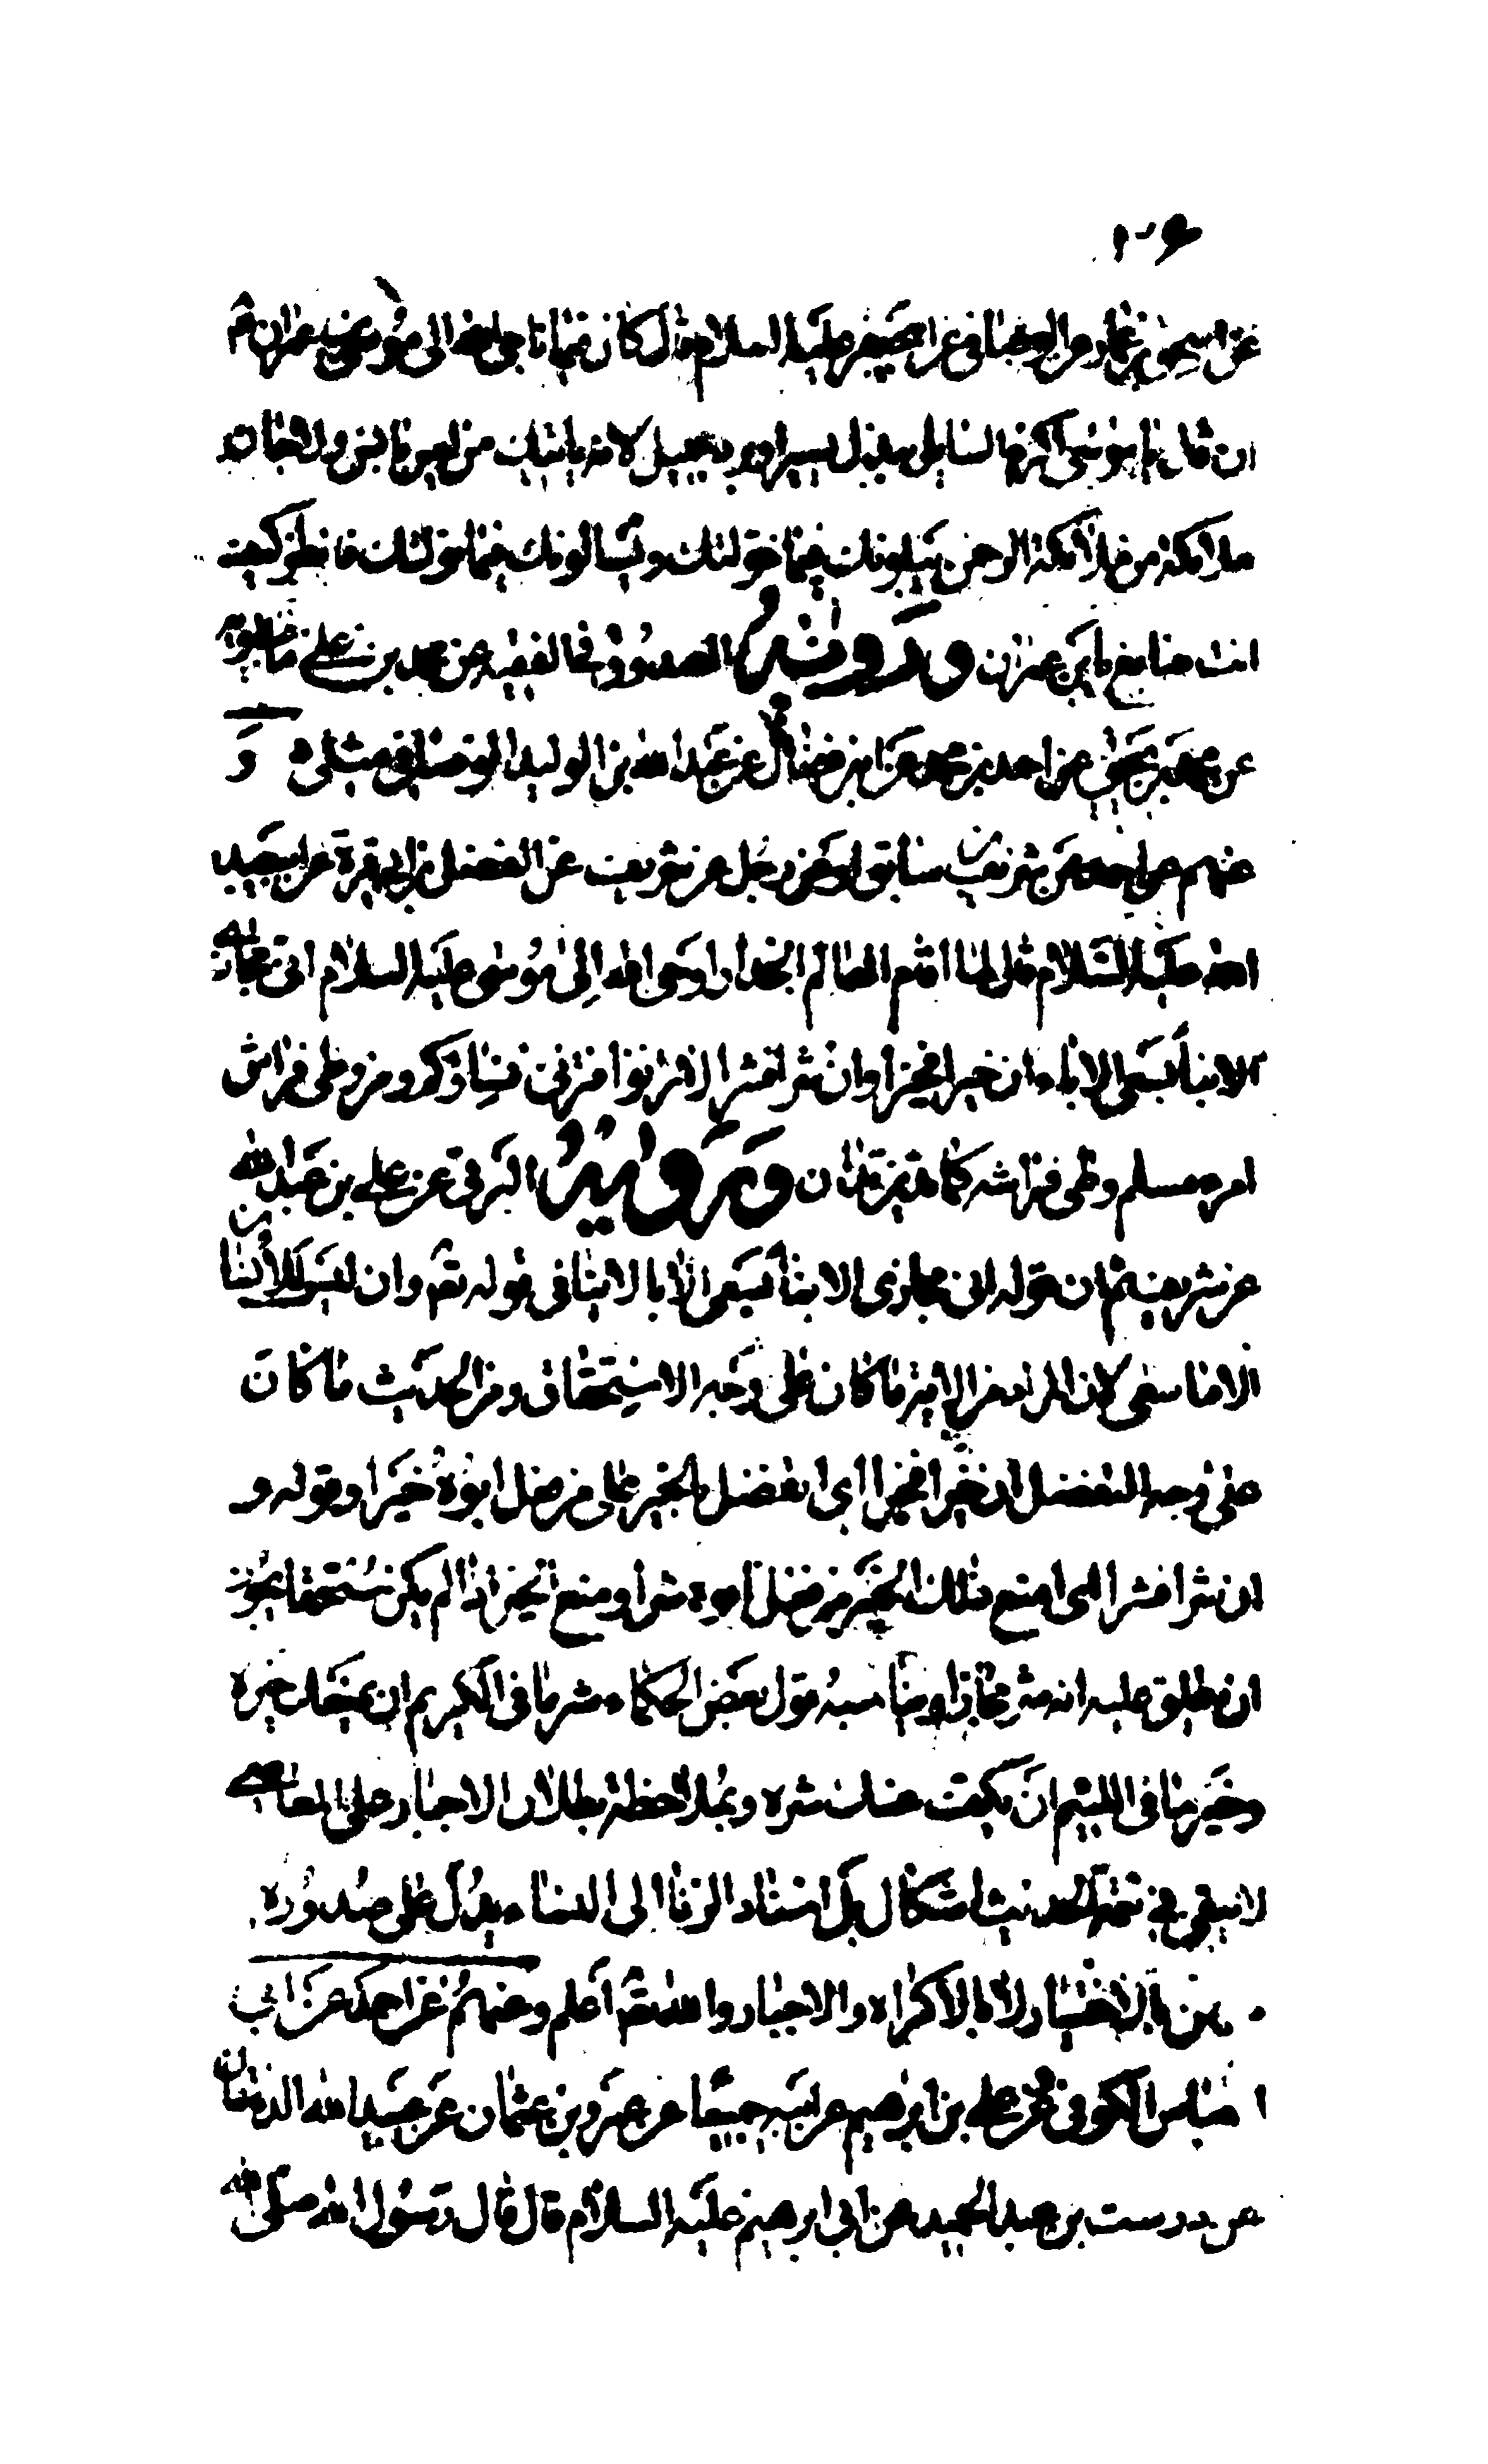 ٣٦
عن اسحق بن عمار عن الوصافى عن ابى جعفر عليه السلام قال كان فيما ناجى الله الى موسى بن عمران
ان قال يا موسى اكرم السائل ببذل يسير او برد جميل لانه يأتيك من ليس بانس ولا جان
ملائكة من ملائكة الرحمن يبلونك فيما خولتك ويسألونك فيما نولتك فانظر كيف
انت صانع يا بن عمران ورواه الصدوق فى الفقيه عن محمد بن على ماجيلويه
عن محمد بن يحيى عن احمد بن محمد عن ابن فضال عن عبد الله بن الوليد الوصافى مثله و
عنهم عن احمد عن شريف بن سابق او عن رجل عن شريف عن الفضل بن ابى قرة عن ابى عبد
الله عليه السلام قال لما اقام العالم الجدار اوحى الله الى موسى عليه السلام انى مجازى
الابناء بسعى الاباء ان خيرا فخيرا وان شرا فشرا لا تزنوا فتزنى نساؤكم ومن وطى فراش
امرء مسلم وطى فراشه كما تدين تدان ورواه البرقى عن على بن عبد الله
عن شريف ثم ان قوله انى مجازى الابناء بسعى الاباء لا ينافى قوله تعالى وان ليس للانسان
الا ما سعى لان المراد من الاية ما كان على وجه الاستحقاق ومن الحديث ما كان
على وجه التفضل ان خيرا فخيرا اى اتفضل بالخير على من فعل ابوه خيرا وقوله و
ان شرا فشرا اى امنع ذلك الخير من فعل ابوه شرا ومنع الخير اذا لم يكن مستحقا يجوز
ان يطلق عليه انه شر مجازا ويناسبه قول بعض الحكماء شر ما فى الكريم ان يمنعك خيره
وخير ما فى اللئيم ان يكف عنك شره وبملاحظة بطلان الاجبار على المعاصى
لا يبقى فى تتمة الحديث اشكال بل اسناد الزنا الى النساء يدل على صدوره
منهن بالاختيار لا بالاكراه والاجبار والله تعالى اعلم وعنهم عن احمد عن ابى
العباس الكوفى وعن على بن ابراهيم عن ابيه جميعا عن عمرو بن عثمان عن عبيد الله الدهقان
عن درست بن عبد الحميد عن ابى ابراهيم عليه السلام قال قال رسول الله صلى الله